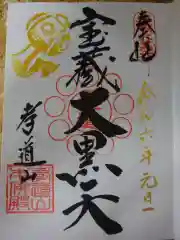 奉拝
令和六年元日
宝蔵
大黒天
孝道山